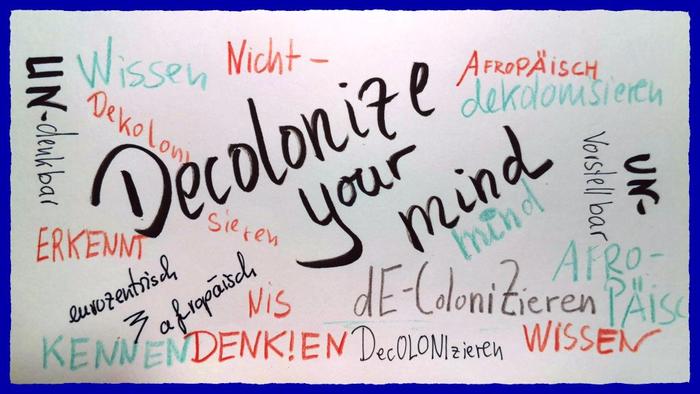 UN-denkbar
Wissen
Nicht-
AFROPÄISCH
dekolonisieren
Dekoloni
sieren
Decolonize
your
mind
mind
UN-
Vorstellbar
ERKENNT
NIS
eurozentrisch
afropäisch
dE-ColoniZieren
AFRO-
PÄISC
KENNEN
DENK!EN
DecOLONIzieren
WISSEN